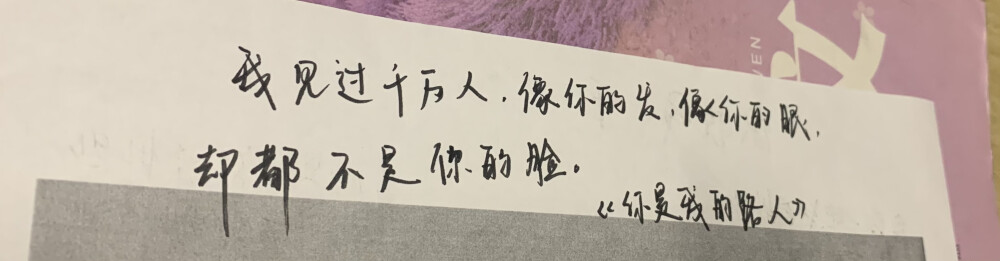 我见过千万人，像你的发，像你的眼，
却都不是你的脸。
《你是我的路人》
VEN